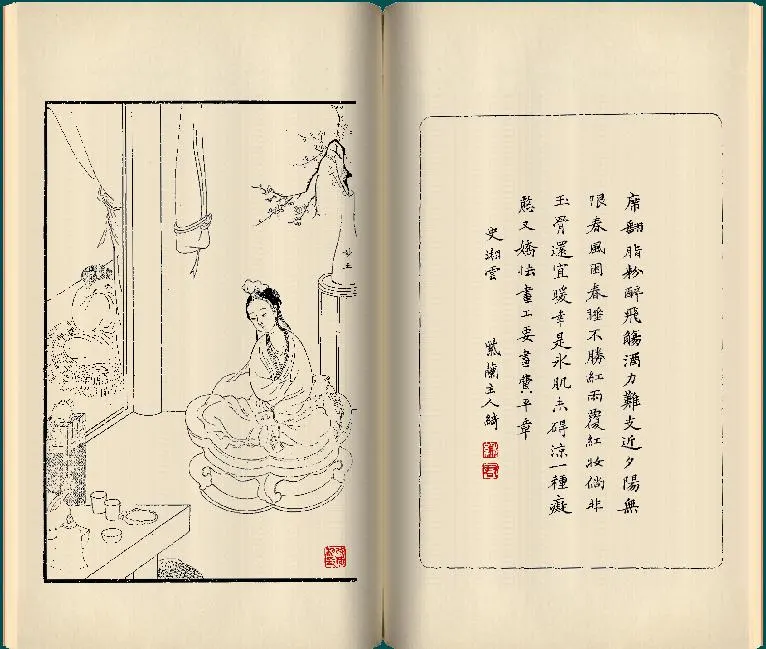 席翻脂粉醉飛觴酒力難支近夕陽無
限春風困春睡不勝紅雨覆紅妝倘非
玉骨還宜暖幸是氷肌未碍涼一種癡
憨又嬌怯畫工要畫費平章
史湘雲 紫蘭主人綺
妙玉